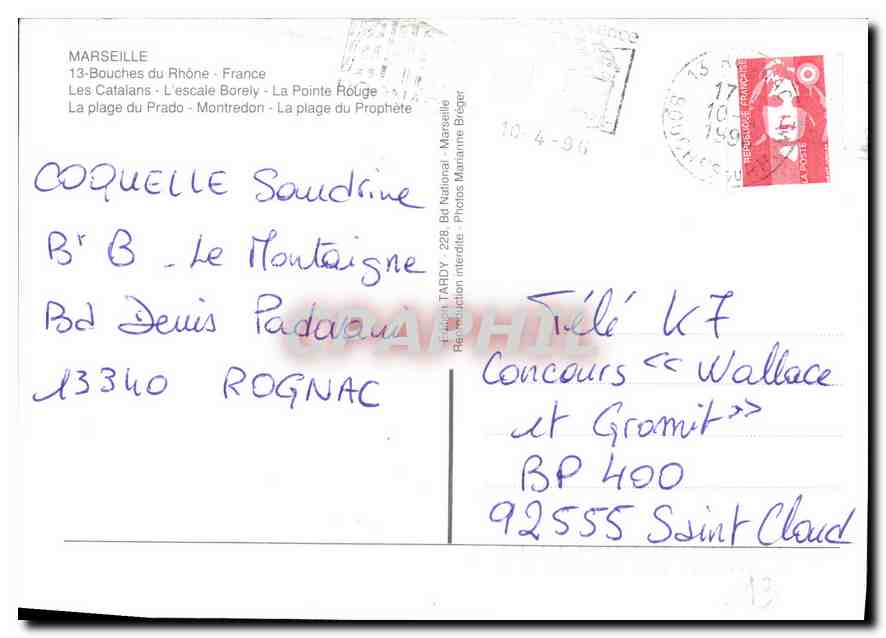 MARSEILLE
13-Bouches du Rhône - France
Les Catalans - L'escale Borely - La Pointe Rouge
La plage du Prado - Montredon - La plage du Prophète
COQUELLE Sandrine
Bt B - Le Montaigne
Bd Denis Padovani
13340 ROGNAC
Edition TARDY - 228, Bd National - Marseille
Reproduction interdite - Photos Marianne Bréger
10-4-96
13
17
10-
199
RÉPUBLIQUE FRANÇAISE
LA POSTE
Télé K7
Concours << Wallace
et Gromit >>
BP 400
92555 Saint Cloud
CPAPHIL
13